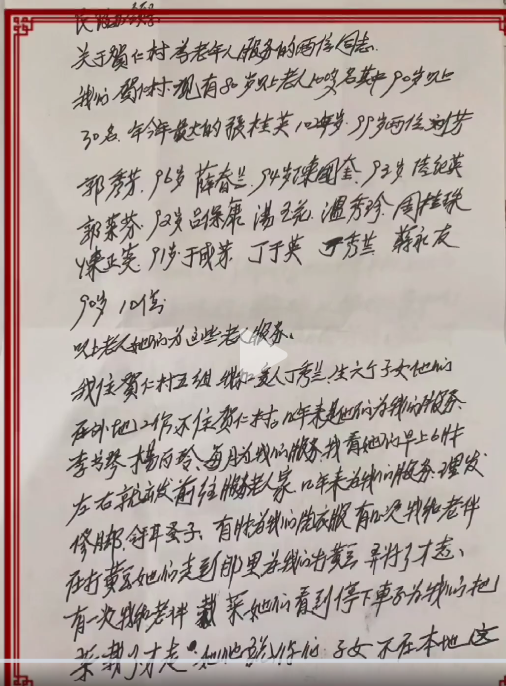 关于贺仁村为老年人服务的两位同志.
我们贺仁村.现有80岁以上老人100多名其中90岁以上
30名.年令最大的张桂英102岁.99岁两位刘芳
郭秀芳.96岁薛春兰.94岁陈国奎.93岁 纪英
郭菜芬.92岁吕保康 汤玉花.温秀珍.周桂珠
陈正英.91岁于成芬.丁于英 丁秀兰 蒋永友
90岁10位
以上老人她们为这些老人服务.
我住贺仁村五组 我和 人丁秀兰.生六个子女他们
在外地工作不住贺仁村.12年来是她们为我们服务.
李芳琴.杨丙玲.每月为我们服务我看她们早上6时
左右就出发前往服务老人家.12年来为我们服务.理发
修脚.舒耳.有时为我们洗衣服有几次我和老伴
在打黄豆她们走到那里为我们打黄豆 弄好了才走.
有一次我和老伴 栽菜她们看到停下车子为我们把
菜栽了才走.她们 说你们 子女不在本地这